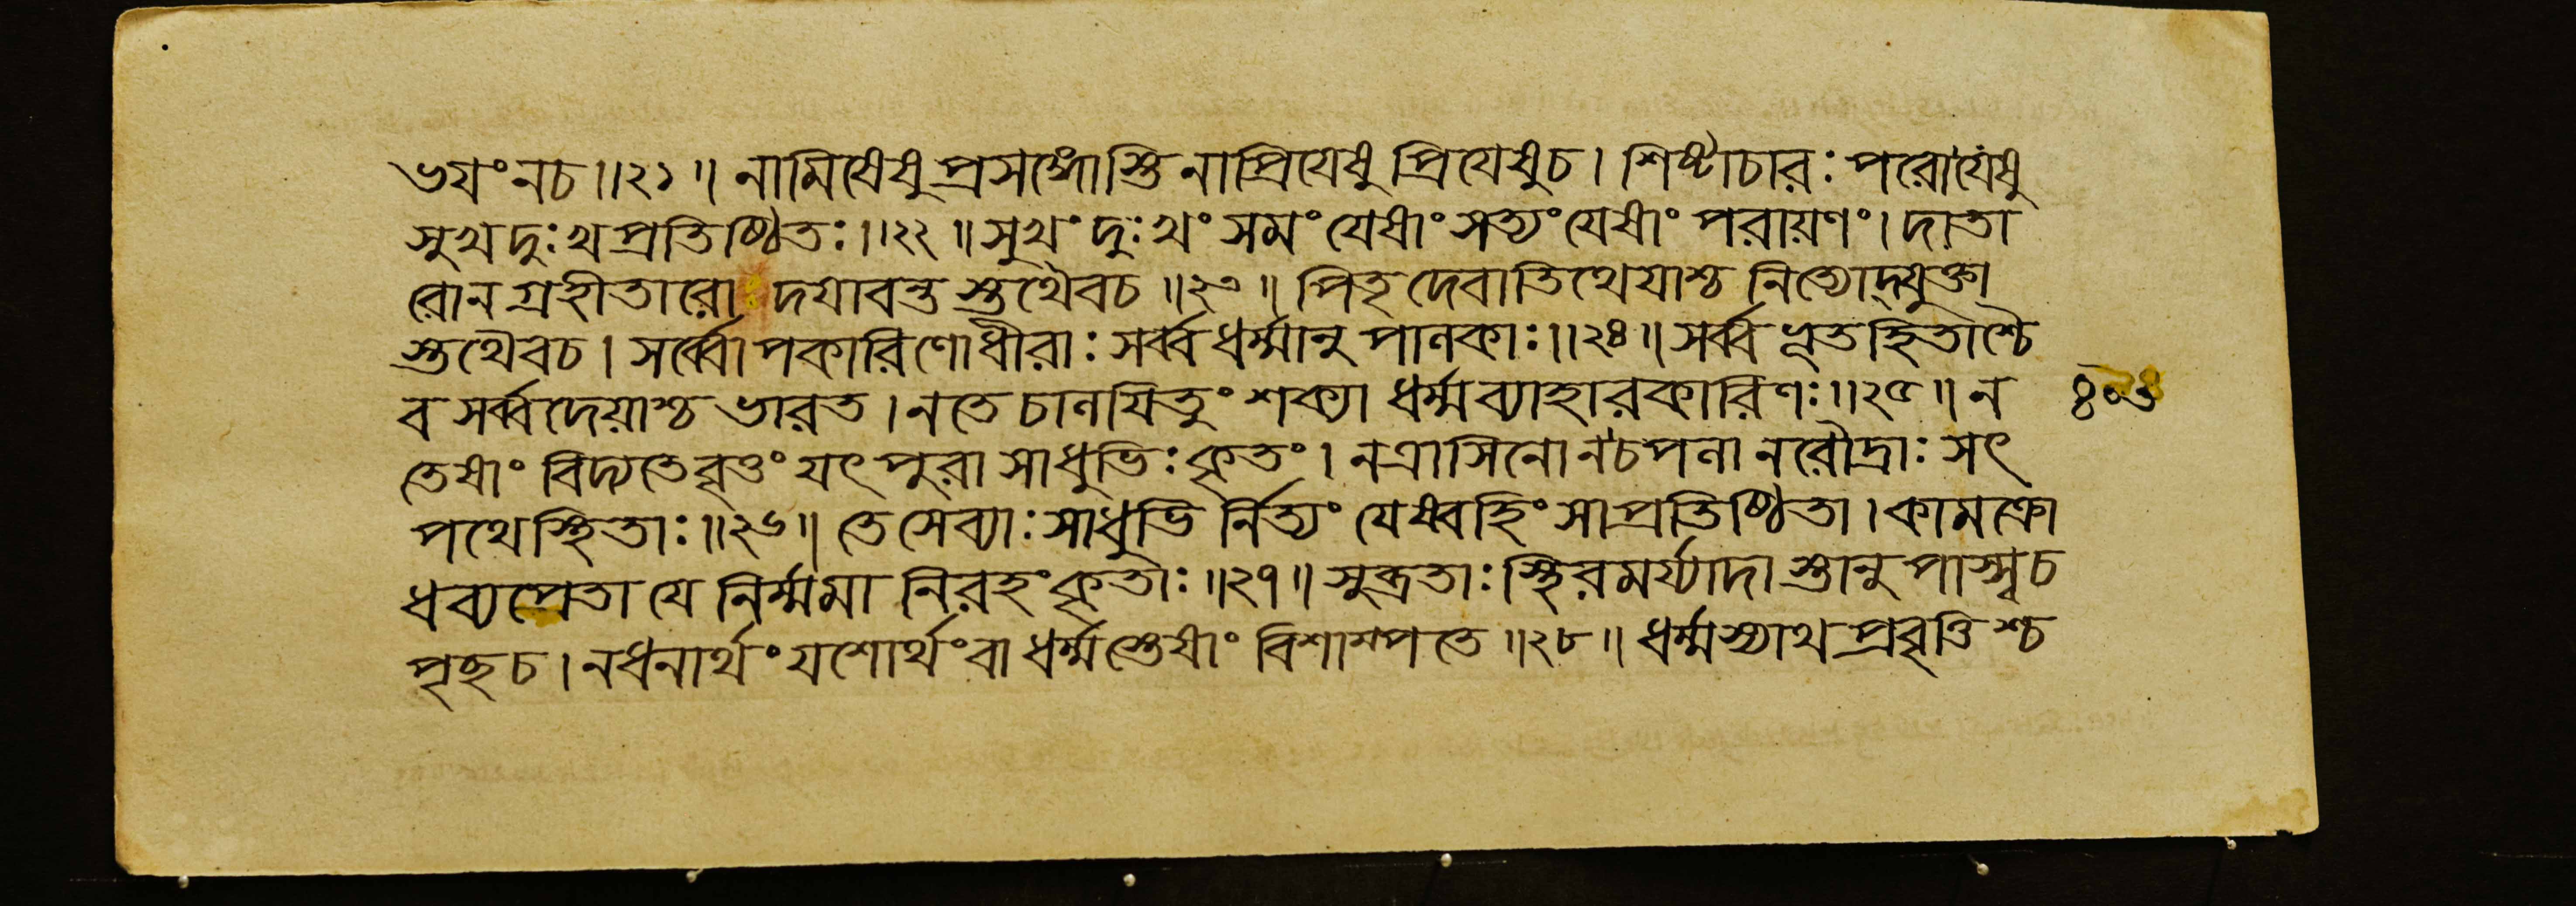 ভয়ং নচ॥২১॥ নামিষেষু প্রসঙ্গোস্তি নাপ্রিযেষু প্রিযেষুচ। শিষ্টাচারঃ পরোযেষু
সুখদুঃখপ্রতিষ্ঠিতঃ॥২২॥ সুখং দুঃখং সমং যেষাং সত্যং যেষাং পরায়ণং। দাতা
রোন গ্রহীতারো দয়াবন্ত স্তথৈবচ॥২৩॥ পিতৃদেবাতিথেয়াশ্চ নিত্যোদ্যুক্তা
স্তথৈবচ। সর্ব্বোপকারিণোধীরাঃ সর্ব্বধর্ম্মানুপালকাঃ॥২৪॥ সর্ব্বভূতহিতাশ্চৈ
ব সর্ব্বদেয়াশ্চ ভারত। নতে চালযিতুং শক্যা ধর্ম্মব্যাহারকারিণঃ॥২৫॥ ন
৪০৬
তেষাং বিদ্যতেবৃত্তং যৎ পুরা সাধুভিঃ কৃতং। নত্রাসিনো নচপলা নরৌদ্রাঃ সৎ
পথেস্থিতাঃ॥২৬॥ তে সেব্যাঃ সাধুভি র্নিত্যং যেষ্বহিংসাপ্রতিষ্ঠিতা। কামক্রো
ধব্যপেতা যে নির্ম্মমা নিরহংকৃতাঃ॥২৭॥ সুব্রতাঃ স্থিরমর্য্যাদা স্তানুপাস্স্বচ
পৃচ্ছচ। নধনার্থং যশোর্থংবা ধর্ম্মস্তেষাং বিশাম্পতে॥২৮॥ ধর্ম্মস্যাথ প্রবৃত্তিশ্চ